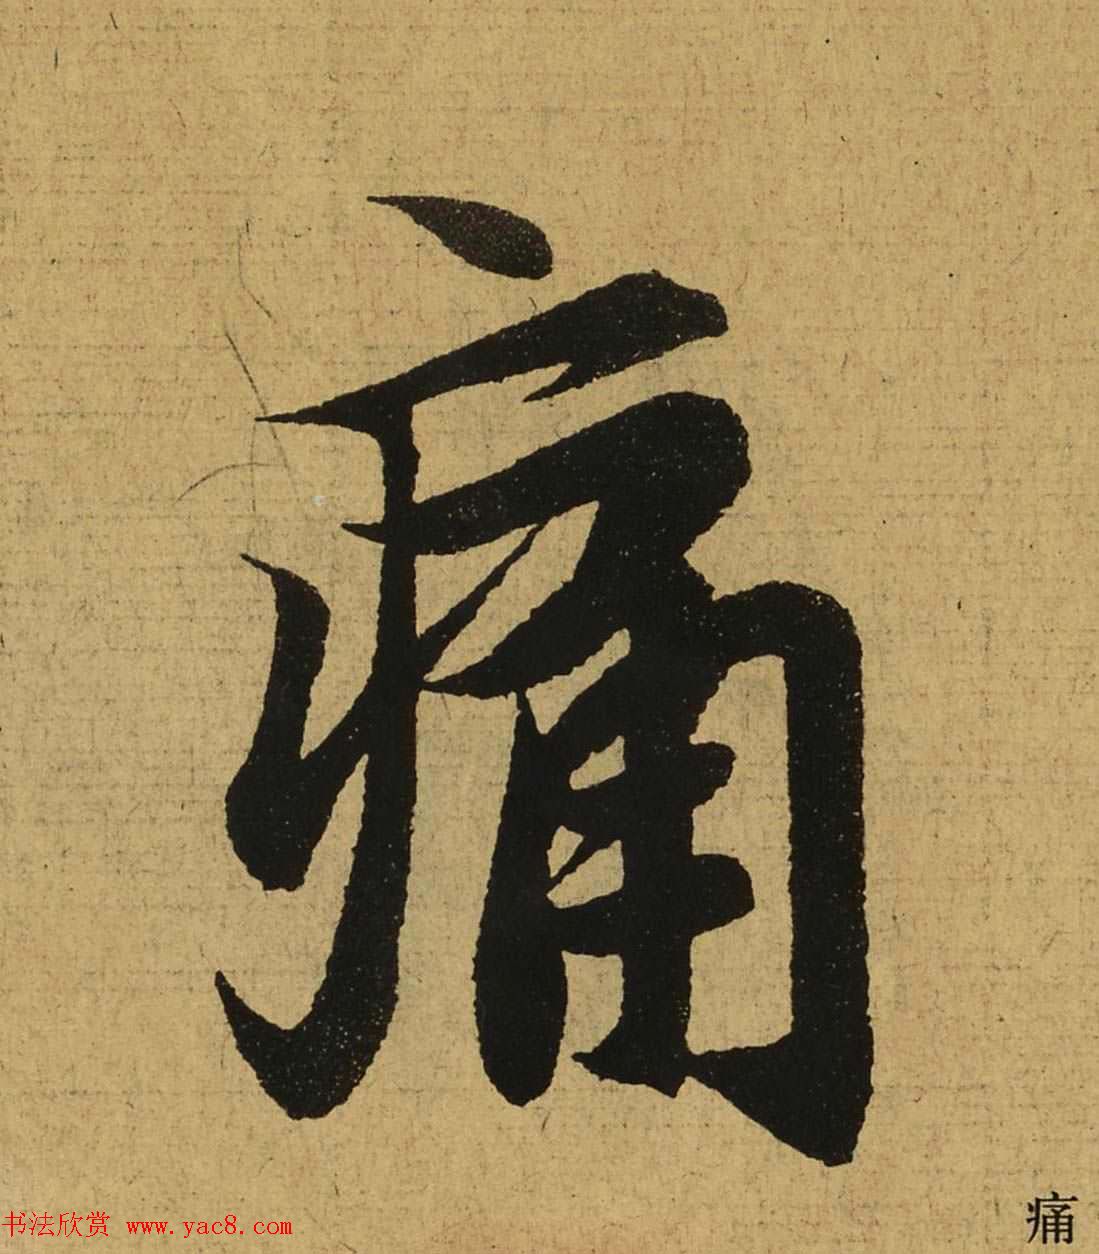 痛
书法欣赏 www.yac8.com
痛